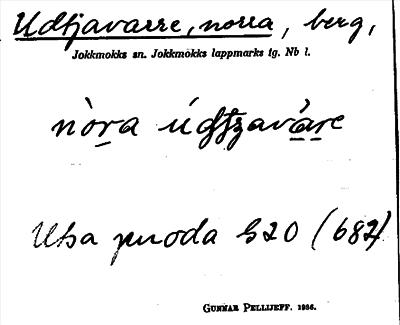 Udtjavarre, norra, berg,
Jokkmokks sn. Jokkmokks lappmarks tg. Nb l.
nòra údtzaváre
520 (682)
GUNNAR PELLIJEFF. 1956.